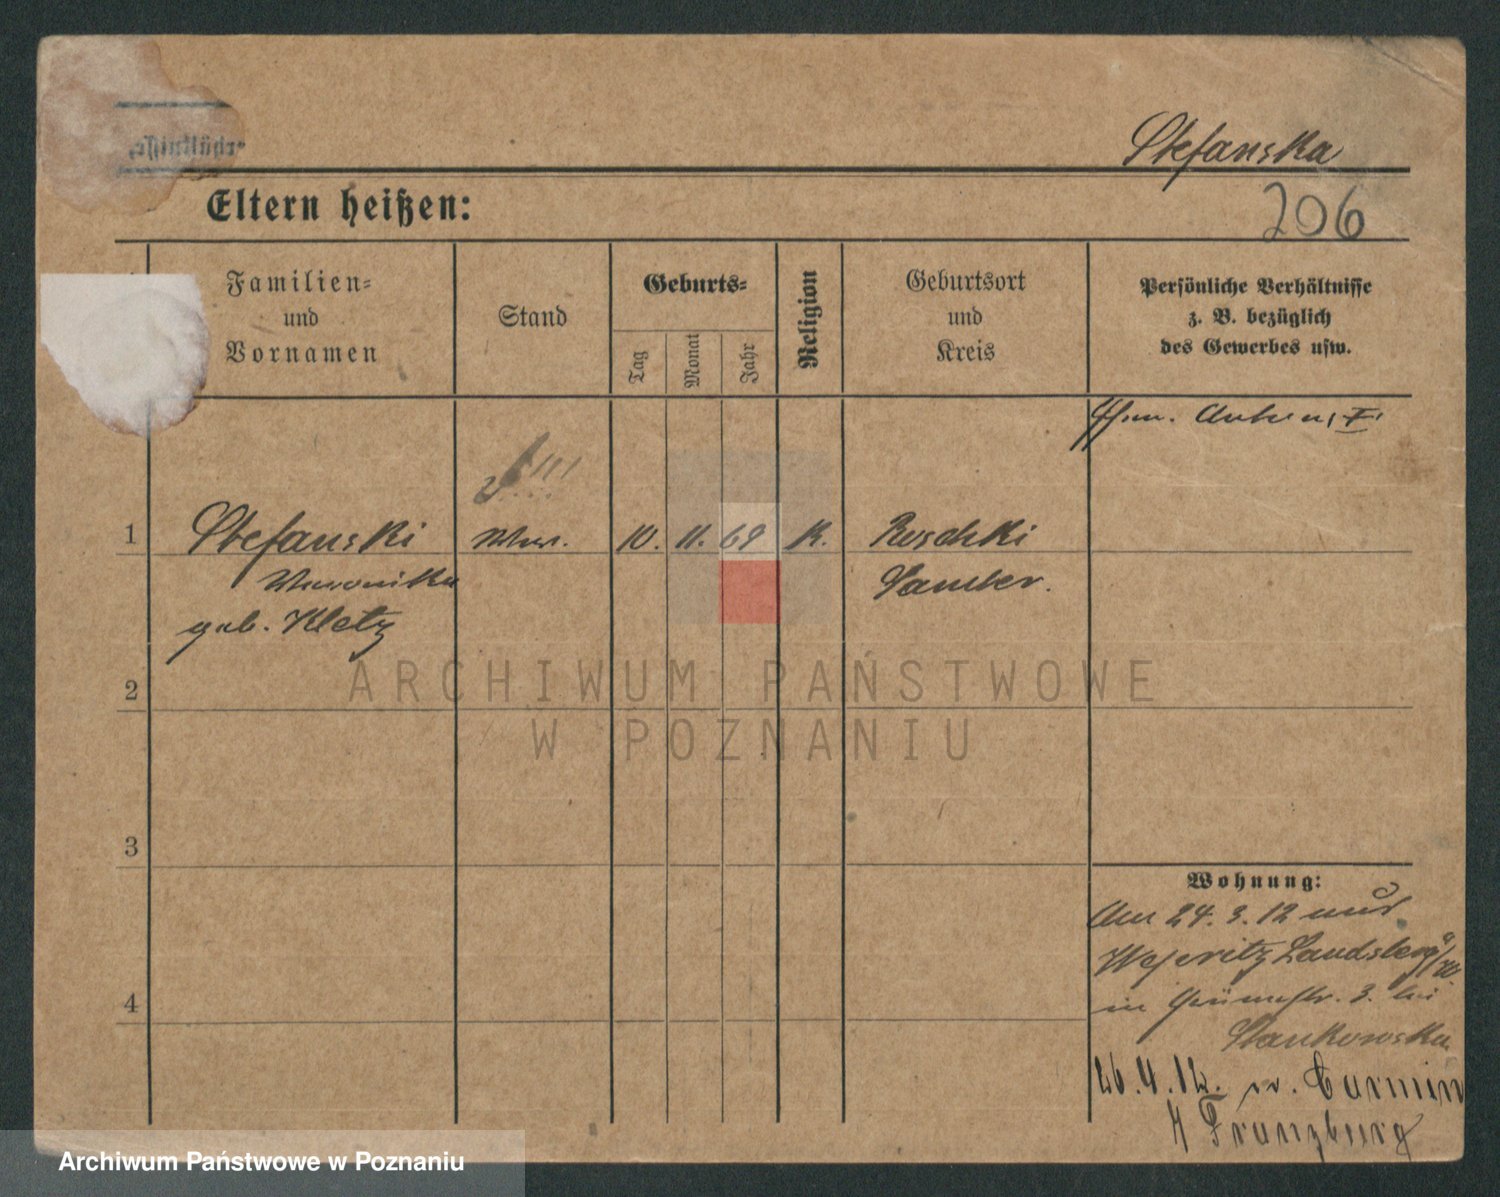 Stefanska
Eltern heißen:
206
Familien-
und
Vornamen
Stand
Geburts-
Tag
Monat
Jahr
Religion
Geburtsort
und
Kreis
Persönliche Verhältnisse
z. B. bezüglich
des Gewerbes usw.
1
Stefanski
Ww.
10.
11.
69
K.
Roschki
Weronika
Samter.
geb. Kletz
2
ARCHIWUM PAŃSTWOWE
W POZNANIU
3
Wohnung:
4
24. 3. 12
Wepritz Landsberg a/W
in 3. bei
Stankowska
26. 4. 12. Carmin
Franzburg
Archiwum Państwowe w Poznaniu